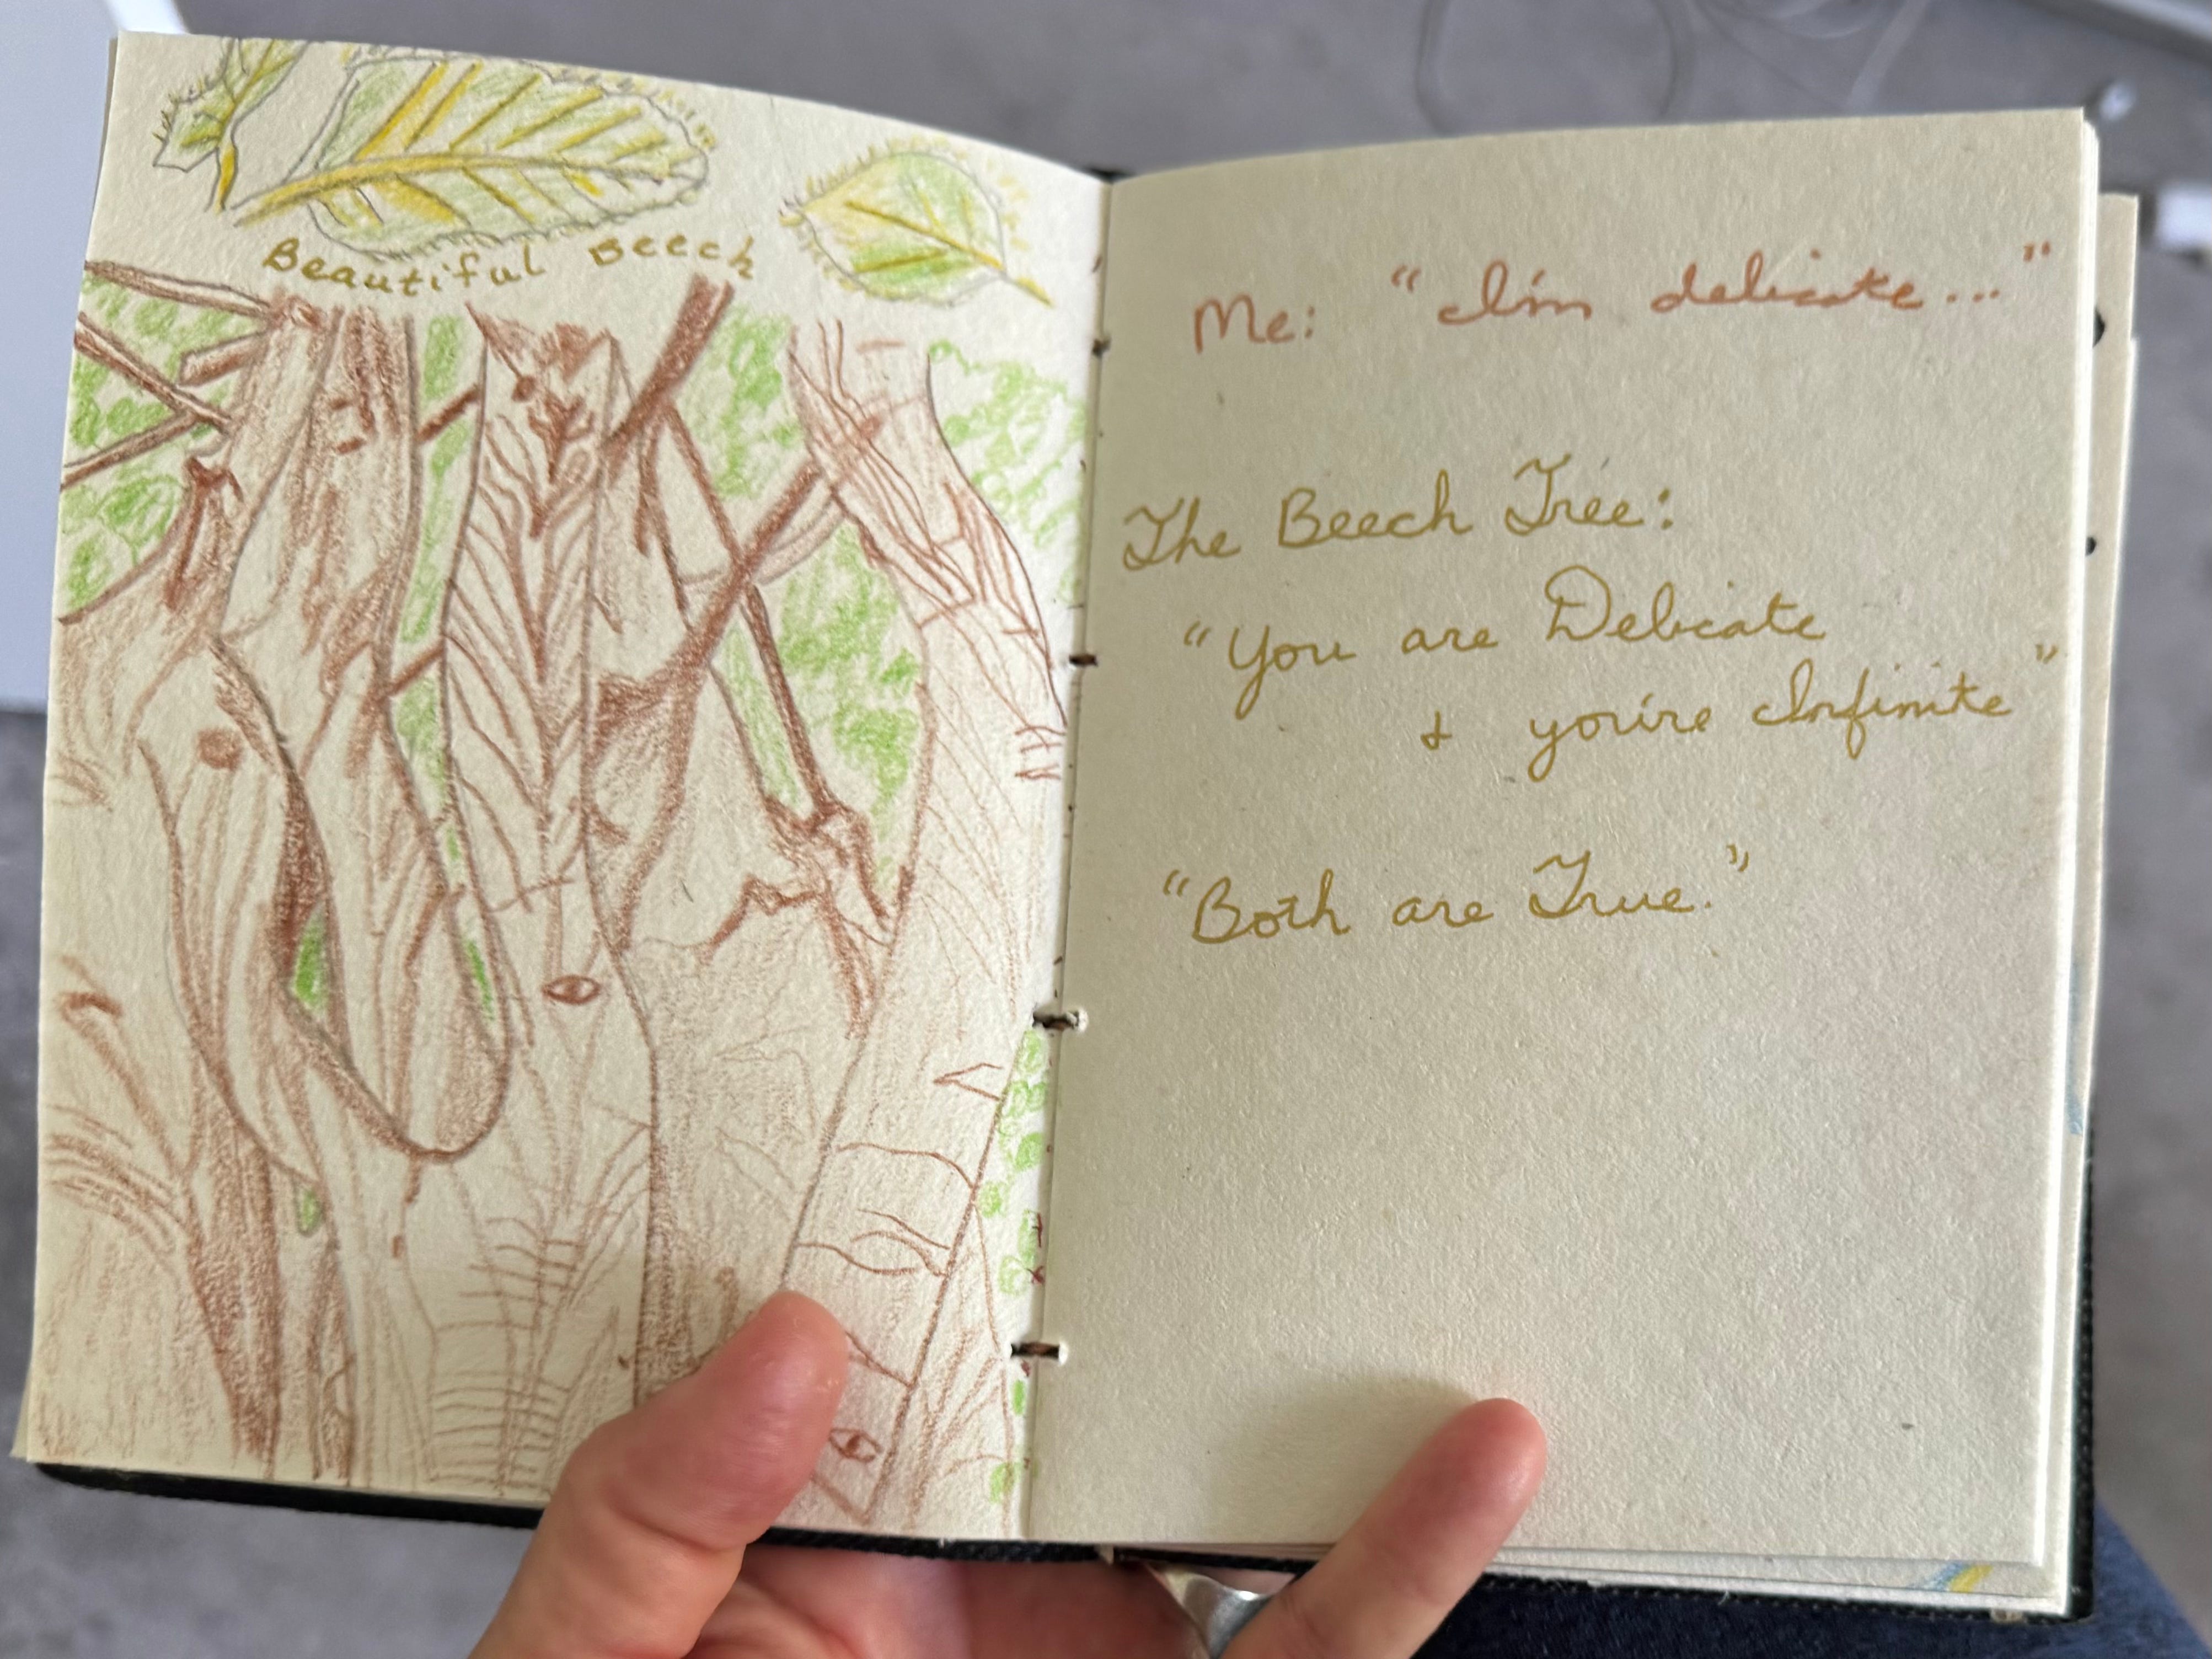 Beautiful Beech
Me: "I'm delicate..."
The Beech Tree:
"You are Delicate
& you're Infinite"
"Both are True."